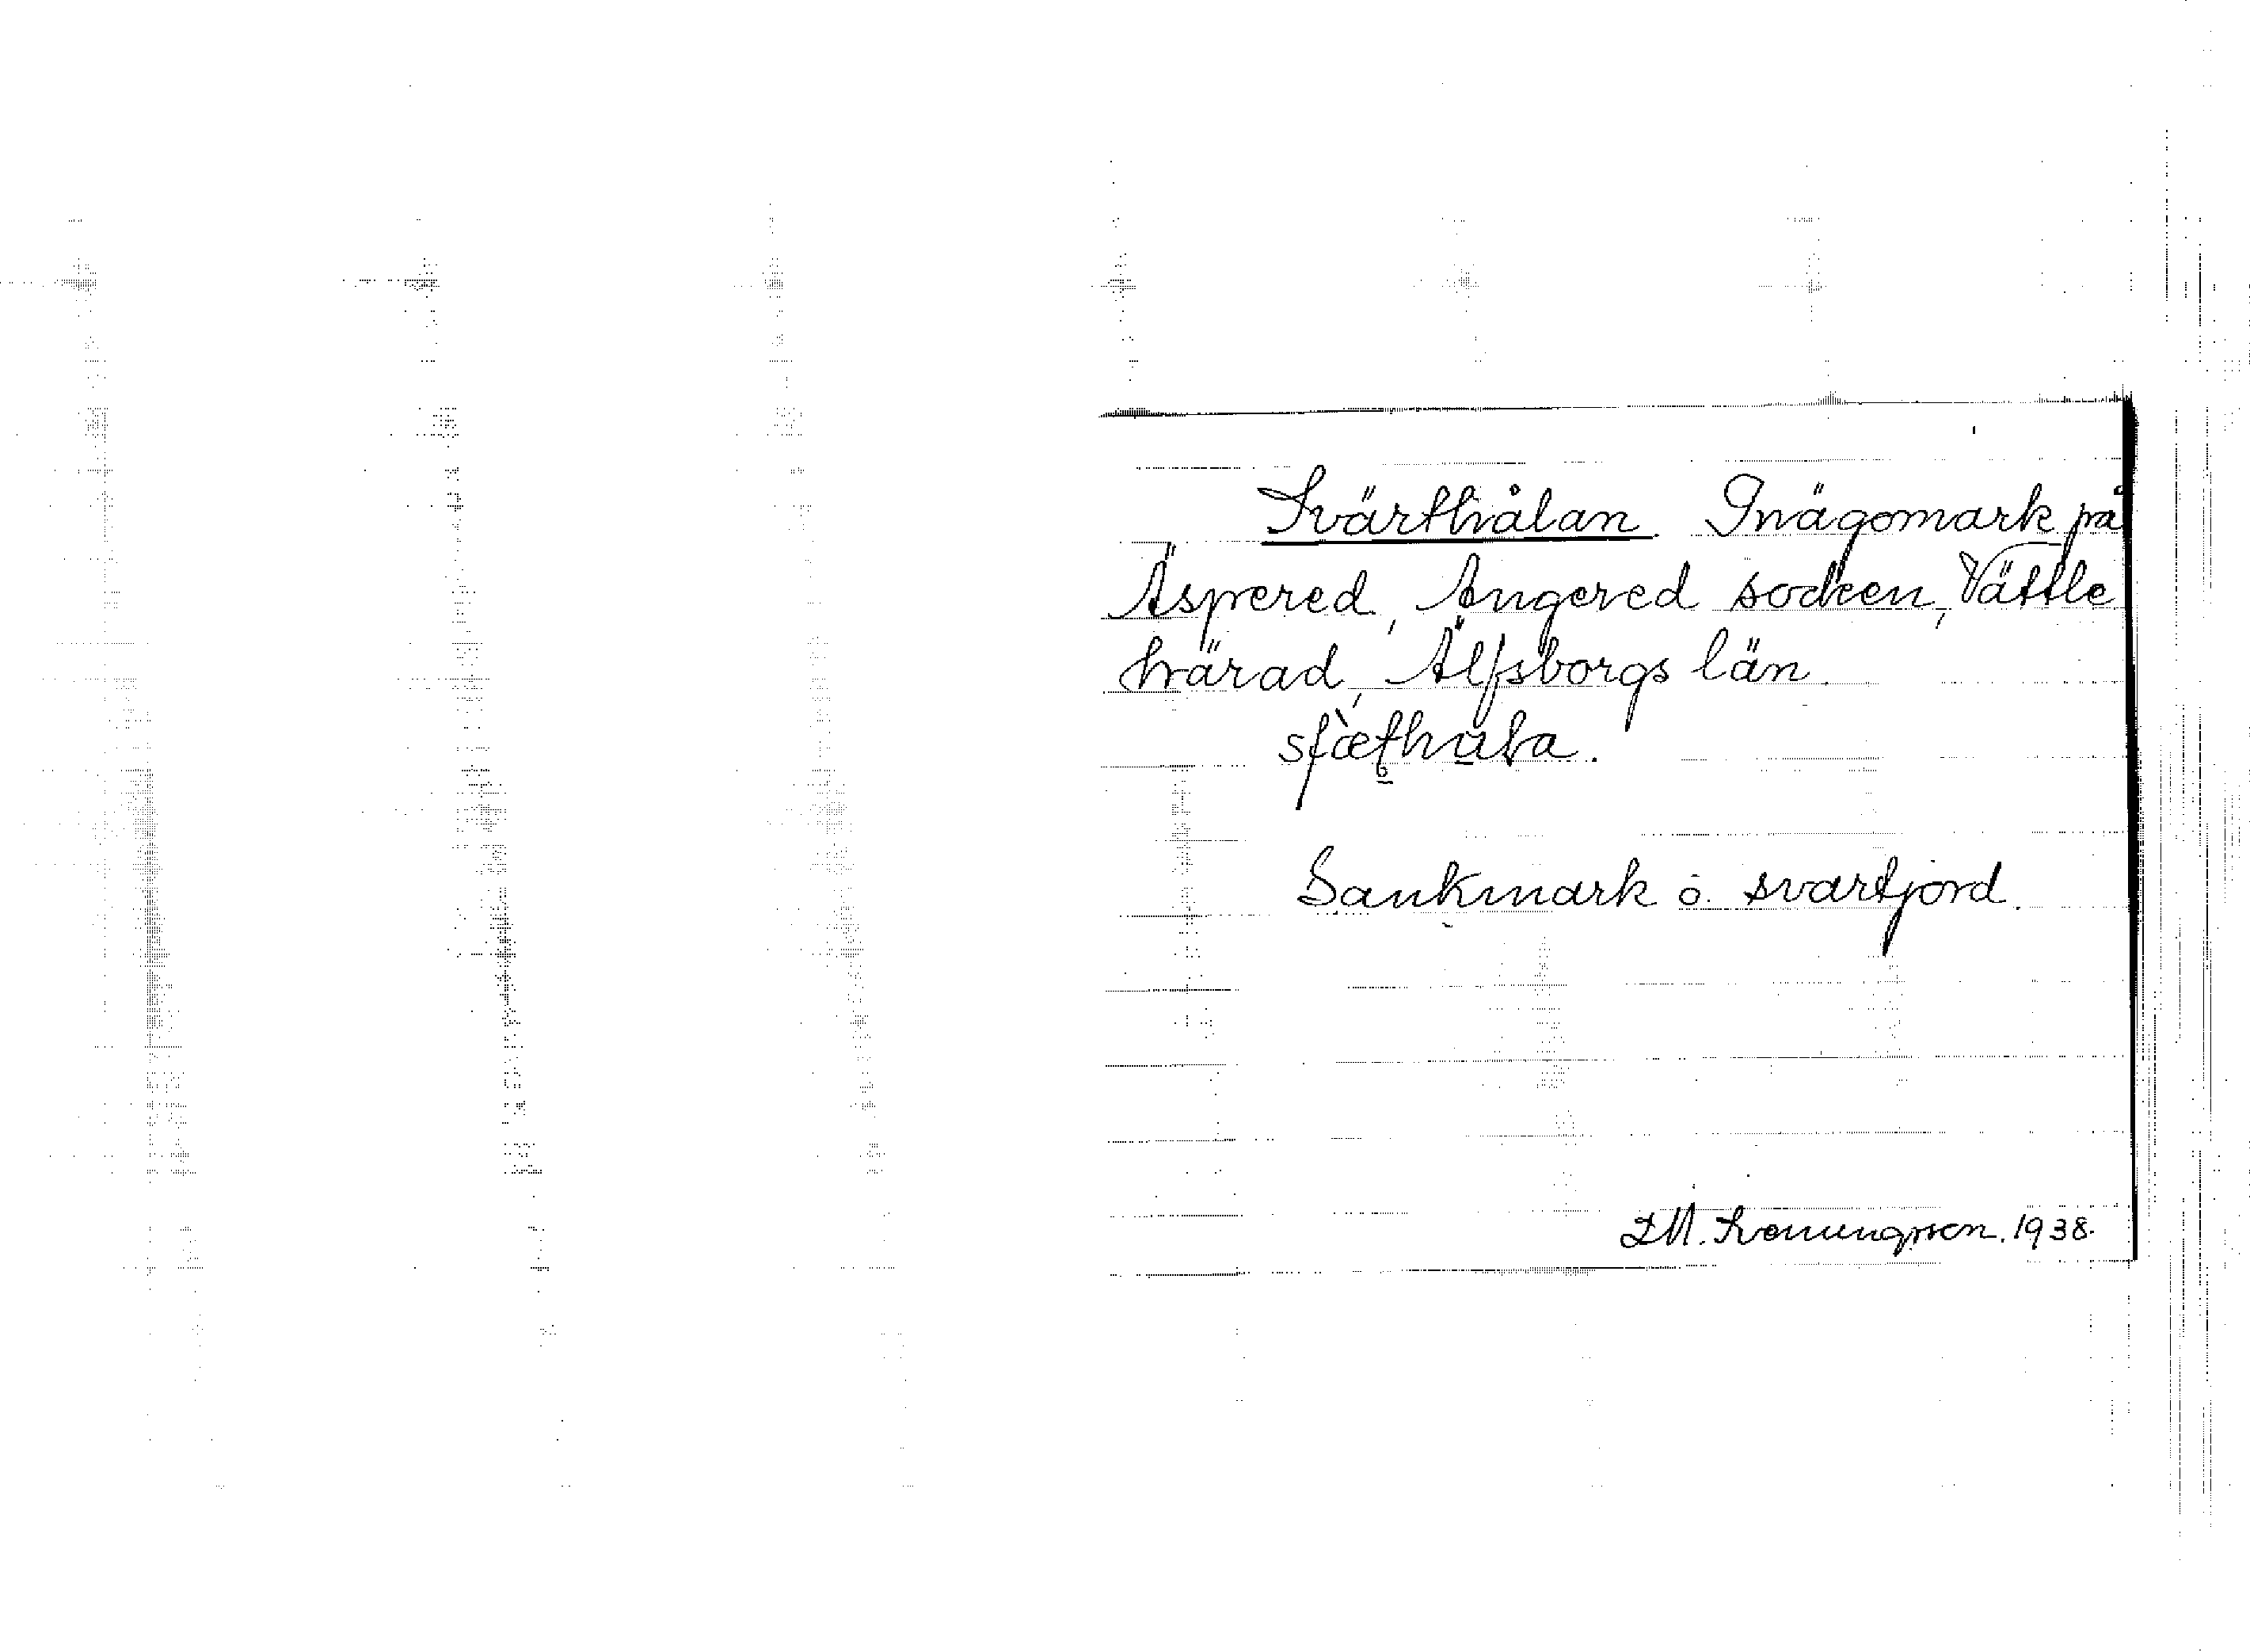 Svärthålan. Inägomark på
Äspered, Angered socken, Vättle
härad, Älfsborgs län.
Sankmark o. svartjord.
1938.